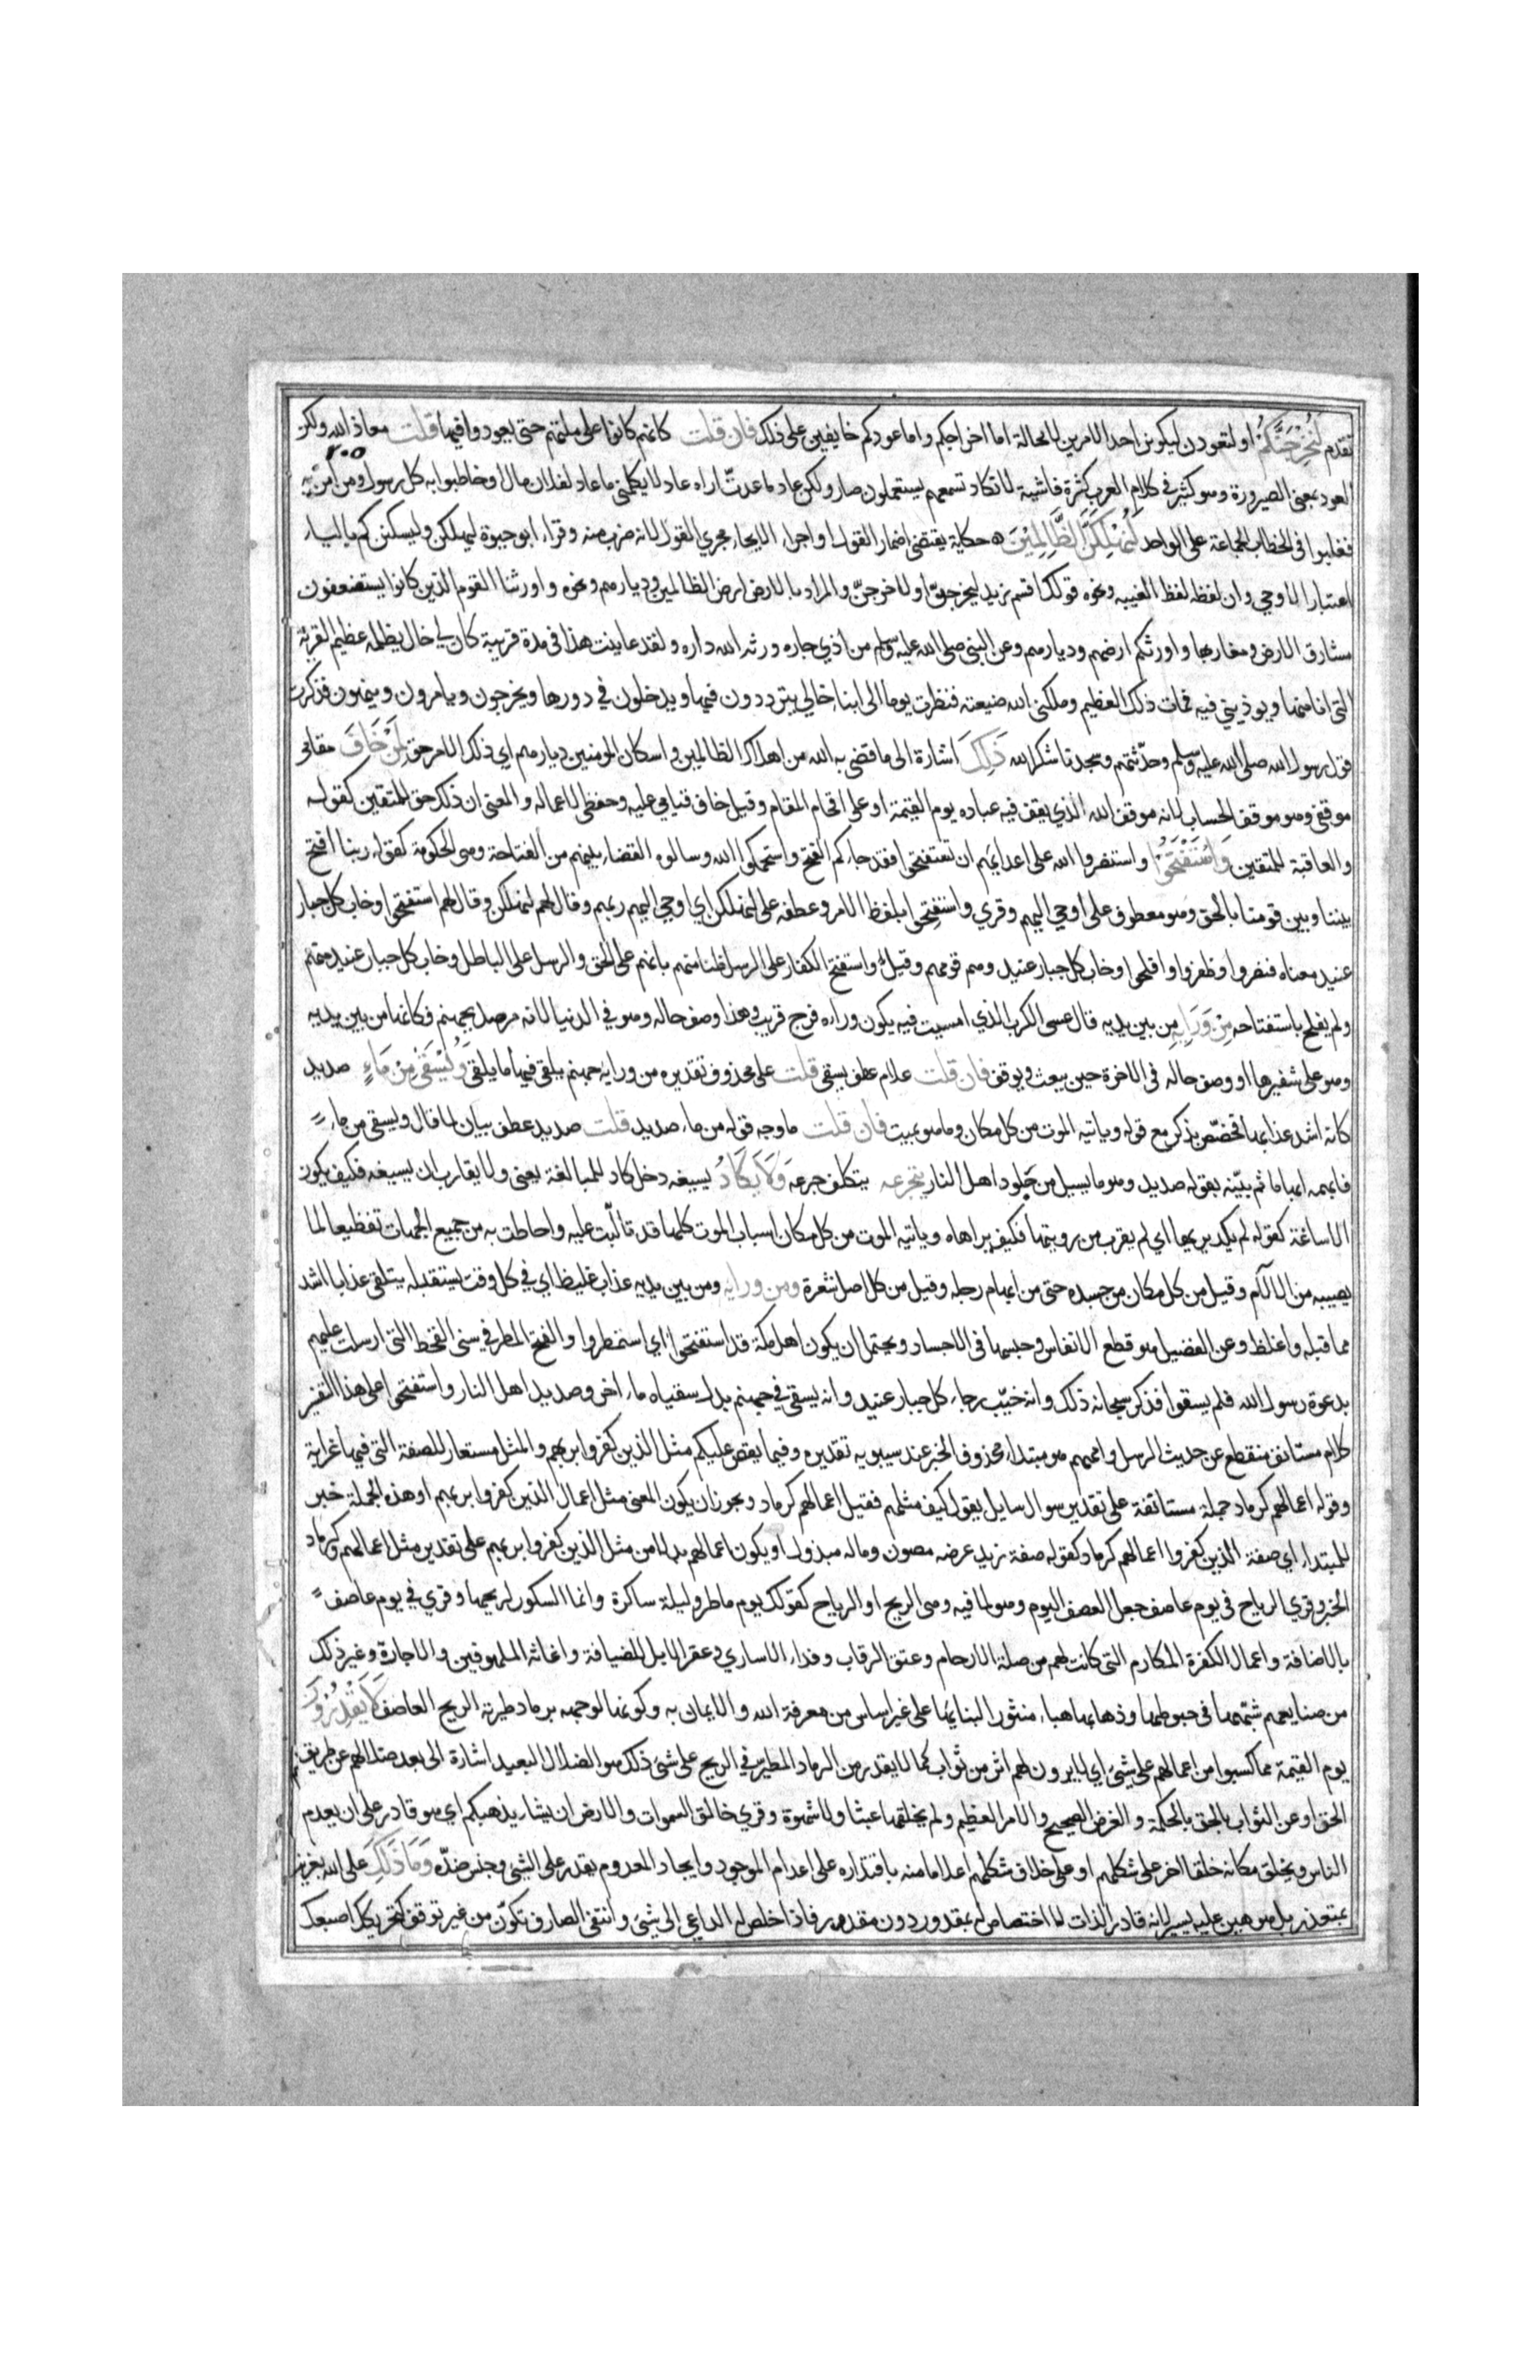 تقدم لَنُخْرِجَنَّكُمْ او لتعودن ليكونن احد الامرين لا محالة اما اخراجكم واما عودكم حالفين على ذلك فان قلت كانهم كانوا على ملتهم حتى يعودوا فيها قلت معاذ الله ولكن
٢٠٥
العود بمعنى الصيرورة وهو كثير في كلام العرب كثرة فاشية لا تكاد تسمعهم يستعملون صار ولكن عاد ما عدت اراه عاد لا يكلمني ما عاد لفلان مال او خاطبوا به كل رسول ومن امن به
فغلبوا في الخطاب الجماعة على الواحد لَنُهْلِكَنَّ الظَّالِمِيْنَ حكاية يقتضي اضمار القول او اجراء الايحاء مجري القول لانه ضرب منه وقراء ابو حيوة ليهلكن وليسكننكم بالياء
اعتبارا لاوحي وان لفظه لفظ الغيبه ونحوه قولك اقسم زيد ليخرجنّ او لاخرجنّ والمراد بالارض ارض الظالمين وديارهم ونحوه واورثنا القوم الذين كانوا يستضعفون
مشارق الارض ومغاربها واورثكم ارضهم وديارهم وعن النبي صلى الله عليه وسلم من اذي جاره ورثه الله داره ولقد عاينت هذا في مدة قريبة كان لي خال يظلمه عظيم القرية
التي انا منها ويوذيني فيه فمات ذلك العظيم وملكني الله ضيعته فنظرت يوما الى ابناء خالي يترددون فيها ويدخلون في دورها ويخرجون ويامرون وينهون فذكرت
قول رسول الله صلى الله عليه وسلم وحدّثتهم وسجدنا شكرا لله ذَلِكَ اشارة الى ما قضى به الله من اهلاك الظالمين واسكان المومنين ديارهم اي ذلك الامر حق لِمَنْ خَافَ مقامي
موقفي وهو موقف الحساب لانه موقف الله الذي يقف فيه عباده يوم القيمة او على اقحام المقام وقيل خاف قيامي عليه وحفظي لاعماله والمعنى ان ذلك حق للمتقين كقوله
والعاقبة للمتقين وَاسْتَفْتَحُوْا واستنصروا الله على اعدايهم ان تستفتحوا فقد جاءكم الفتح واستحكموا الله وسالوه القضاء بينهم من الفتاحة وهي الحكومة كقوله ربنا افتح
بيننا وبين قومنا بالحق وهو معطوف على اوحي اليهم وقري واستفتِحوا بلفظ الامر وعطفه على لنهلكن اي اوحي اليهم ربهم وقال لهم لنهلكن وقال لهم استفتحوا وخاب كل جبار
عنيد معناه فنصروا وظفروا وافلحوا وخاب كل جبار عنيد وهم قومهم وقيل واستفتح الكفار على الرسل ظنا منهم بانهم على الحق والرسل على الباطل وخاب كل جبار عنيد منهم
ولم يفلح باستفتاحه مِنْ وَرَايِهِ من بين يديه قال عسى الكرب الذي امسيت فيه يكون وراءه فرج قريب وهذا وصف حاله وهو في الدنيا لانه مرصد بجهنم فكانها من بين يديه
وهو على شفيرها او وصف حاله في الاخرة حين يبعث ويوقف فان قلت علام عطف يسقى قلت على محذوف تقديره من ورايه جهنم يلقى فيها ما يلقى وَيُسْقَى مِنْ مَاءٍ صديد
كانه اشد عذابها فخصّص بذكر مع قوله وياتيه الموت من كل مكان وما هو بميت فان قلت ما وجه قوله من ماء صديد قلت صديد عطف بيان لما قال ويسقى من ماء
فابهمه ابهاما ثم بيّنه بقوله صديد وهو ما يسيل من جلود اهل النار يتجرعه يتكلف جرعه وَلَا يَكَادُ يسيغه دخل كاد للمبالغة يعني ولا يقارب ان يسيغه فكيف يكون
الاساغة كقوله لم يكد يريها اي لم يقرب من رويتها فكيف يراهاه وياتيه الموت من كل مكان اسباب الموت كلها قد تالّبت عليه واحاطت به من جميع الجهات تفظيعا لما
يصيبه من الالآم وقيل من كل مكان من جسده حتى من ابهام رجله وقيل من كل اصل شعرة ومن ورايه ومن بين يديه عذاب غليظ اي في كل وقت يستقبله يتلقى عذابا اشد
مما قبله واغلظ وعن الفضيل هو قطع الانفاس وحبسها في الاجساد ويحتمل ان يكون اهل مكة قد استفتحوا اي استمطروا والفتح المطر في سني القحط التي ارسلت عليهم
بدعوة رسول الله فلم يسقوا فذكر سبحانه ذلك وانه خيّب رجاء كل جبار عنيد وانه يسقى في جهنم بدل سقياه ماء اخر وصديد اهل النار واستفتحوا على هذا التفسير
كلام مستانف منقطع عن حديث الرسل واممهم هو مبتداء محذوف الخبر عند سيبويه تقديره وفيما يقص عليكم مثل الذين كفروا بربهم والمثل مستعار للصفة التي فيها غرابة
وقوله اعمالهم كرماد جملة مستانفة على تقدير سوال سايل يقول كيف مثلهم فقيل اعمالهم كرماد ويجوز ان يكون المعنى مثل اعمال الذين كفروا بربهم او هذه الجملة خبر
للمبتداء اي صفة الذين كفروا اعمالهم كرماد كقوله صفة زيد عرضه مصون وماله مبذول او يكون اعمالهم بدلا من مثل الذين كفروا بربهم على تقدير مثل اعمالهم كرماد
الخبر وقري الرياح في يوم عاصف جعل العصف لليوم وهو لما فيه وهي الريح او الرياح كقولك يوم ماطر وليلة ساكرة وانما السكور لريحها وقري في يوم عاصف
بالاضافة واعمال الكفرة المكارم التي كانت لهم من صلة الارحام وعتق الرقاب وفداء الاساري وعقر الابل للضيافة واغاثة الملهوفين والاجارة وغير ذلك
من صنايعهم شبّهها في حبوطها وذهابها هباء منثورا لبنايها على غير اساس من معرفة الله والايمان به وكونها لوجهه برماد طيرته الريح العاصف لَا يَقْدِرُوْنَ
يوم القيمة مما كسبوا من اعمالهم على شيئ اي لا يرون لهم اثر من ثواب كما لا يقدر من الرماد المطيّر في الريح على شيئ ذلك هو الضلال البعيد اشارة الى بعد ضلالهم عن طريق
الحق او عن الثواب بالحق بالحكمة والغرض الصحيح والامر العظيم ولم يخلقها عبثا ولا شهوة وقري خالق السموات والارض ان يشاء يذهبكم اي هو قادر على ان يعدم
الناس ويخلق مكانه خلقا اخر على شكلهم او على خلاف شكلهم اعلاما منه باقتداره على اعدام الموجود وايجاد المعدوم يقدر على الشي وجنس ضدّه وَمَا ذَلِكَ على الله بعزيز
بمتعذر بل هو هين عليه يسير لانه قادر الذات لا اختصاص له بمقدور دون مقدور فاذا خلص له الداعي الى شيئ وانتفى الصارف تكوّن من غير توقف كتحريكك اصبعك